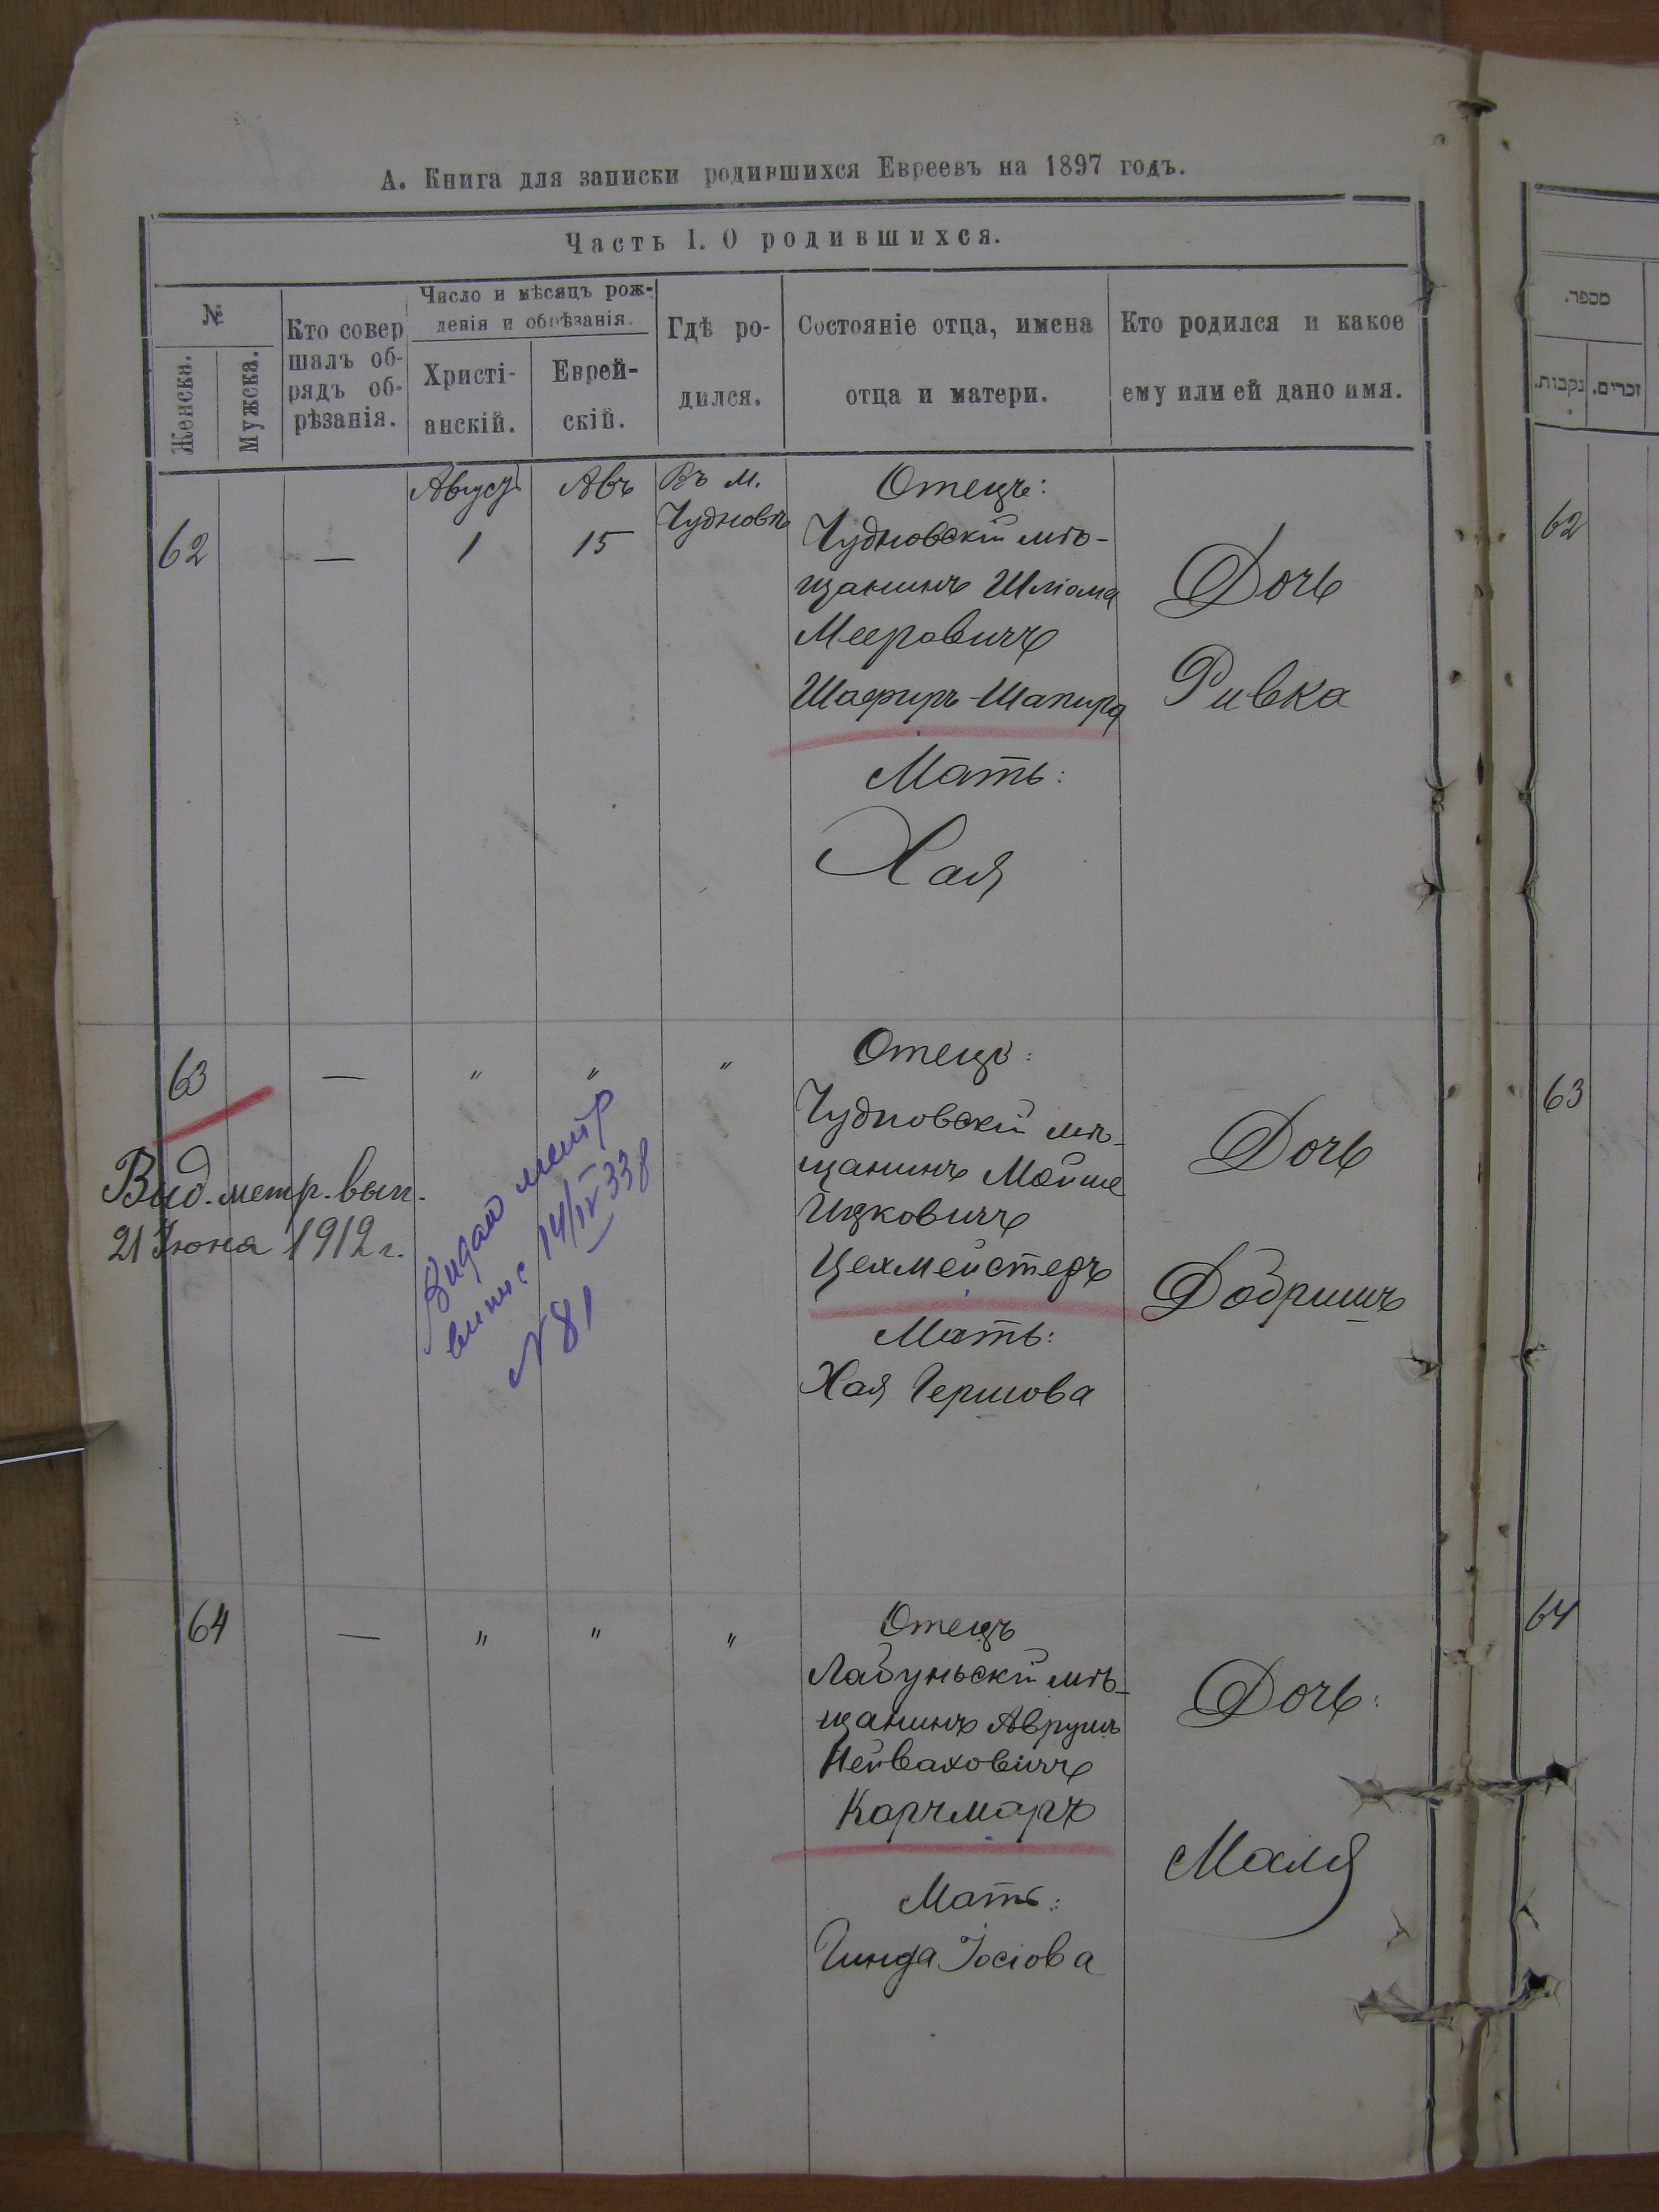 А. Книга для записки родившихся Евреевъ на 1897 годъ.
Часть I. О родившихся.
№
Женска.
Мужска.
Кто совер
шалъ об-
рядъ об-
рѣзанія.
Число и мѣсяцъ рож-
денія и обрѣзанія.
Христі-
анскій.
Еврей-
скій.
Гдѣ ро-
дился.
Состояніе отца, имена
отца и матери.
Кто родился и какое
ему или ей дано имя.
מספר.
נקבות.
זכרים.
62
—
Август
1
Авъ
15
Въ м.
Чудновѣ
Отецъ:
Чудновскій мѣ-
щанинъ Шліома
Мееровичъ
Шафиръ-Шапира
Мать:
Хая
Дочь
Ривка
62
63
—
"
"
"
Выд. метр. вып.
21 Іюня 1912 г.
Видано метр
випис 14/IV 338
N 81
Отецъ:
Чудновскій мѣ-
щанинъ Мойше
Ицковичъ
Цехмейстеръ
Мать:
Хая Гершова
Дочь
Добришъ
63
64
—
"
"
"
Отецъ
Лабуньскій мѣ-
щанинъ Аврумъ
Нейваховичъ
Карчмаръ
Мать:
Гинда Іосіова
Дочь:
Маля
64